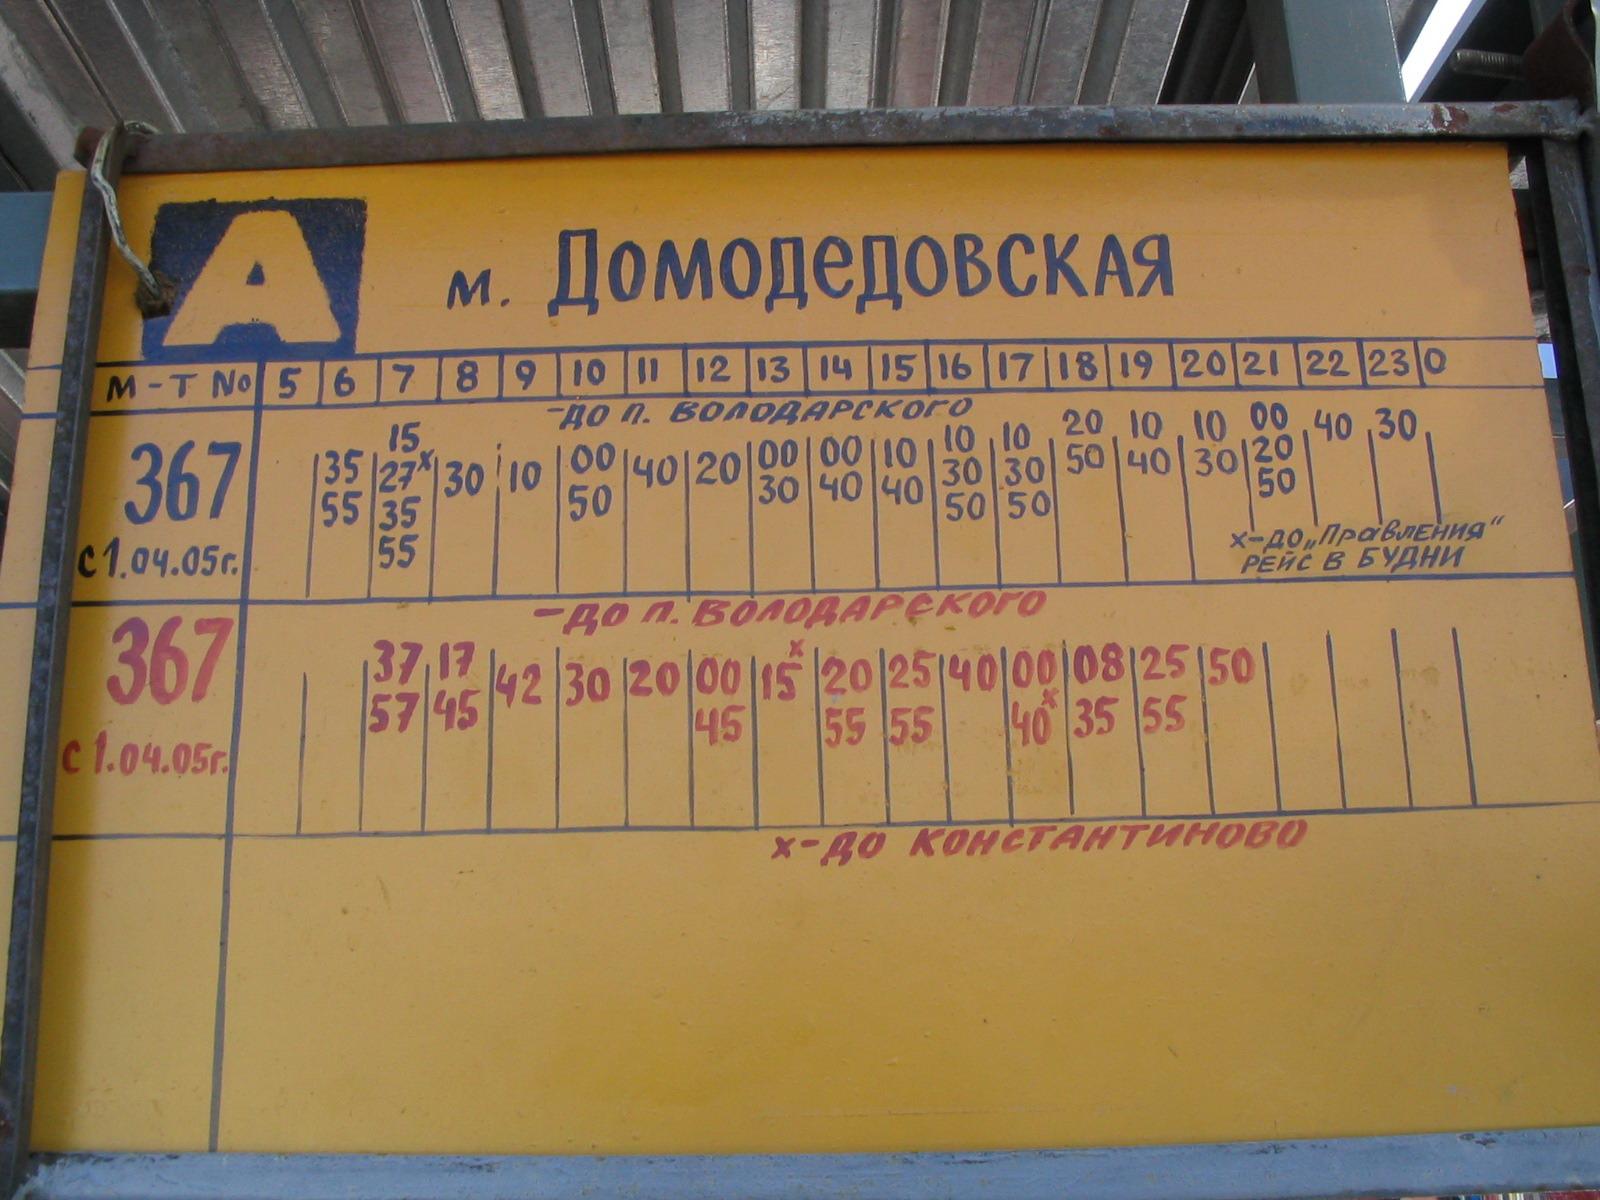 А м. Домодедовская
М-Т No 5 6 7 8 9 10 11 12 13 14 15 16 17 18 19 20 21 22 23 0
-до п. Володарского
367 35 15 30 10 00 40 20 00 00 10 10 10 20 10 10 00 40 30
55 27х 50 30 40 40 30 30 50 40 30 20
35 50 50 50
55
с 1.04.05г.
х-до „Правления"
рейс в будни
-до п. Володарского
367 37 17 42 30 20 00 15х 20 25 40 00 08 25 50
57 45 45 55 55 40х 35 55
с 1.04.05г.
х-до Константиново